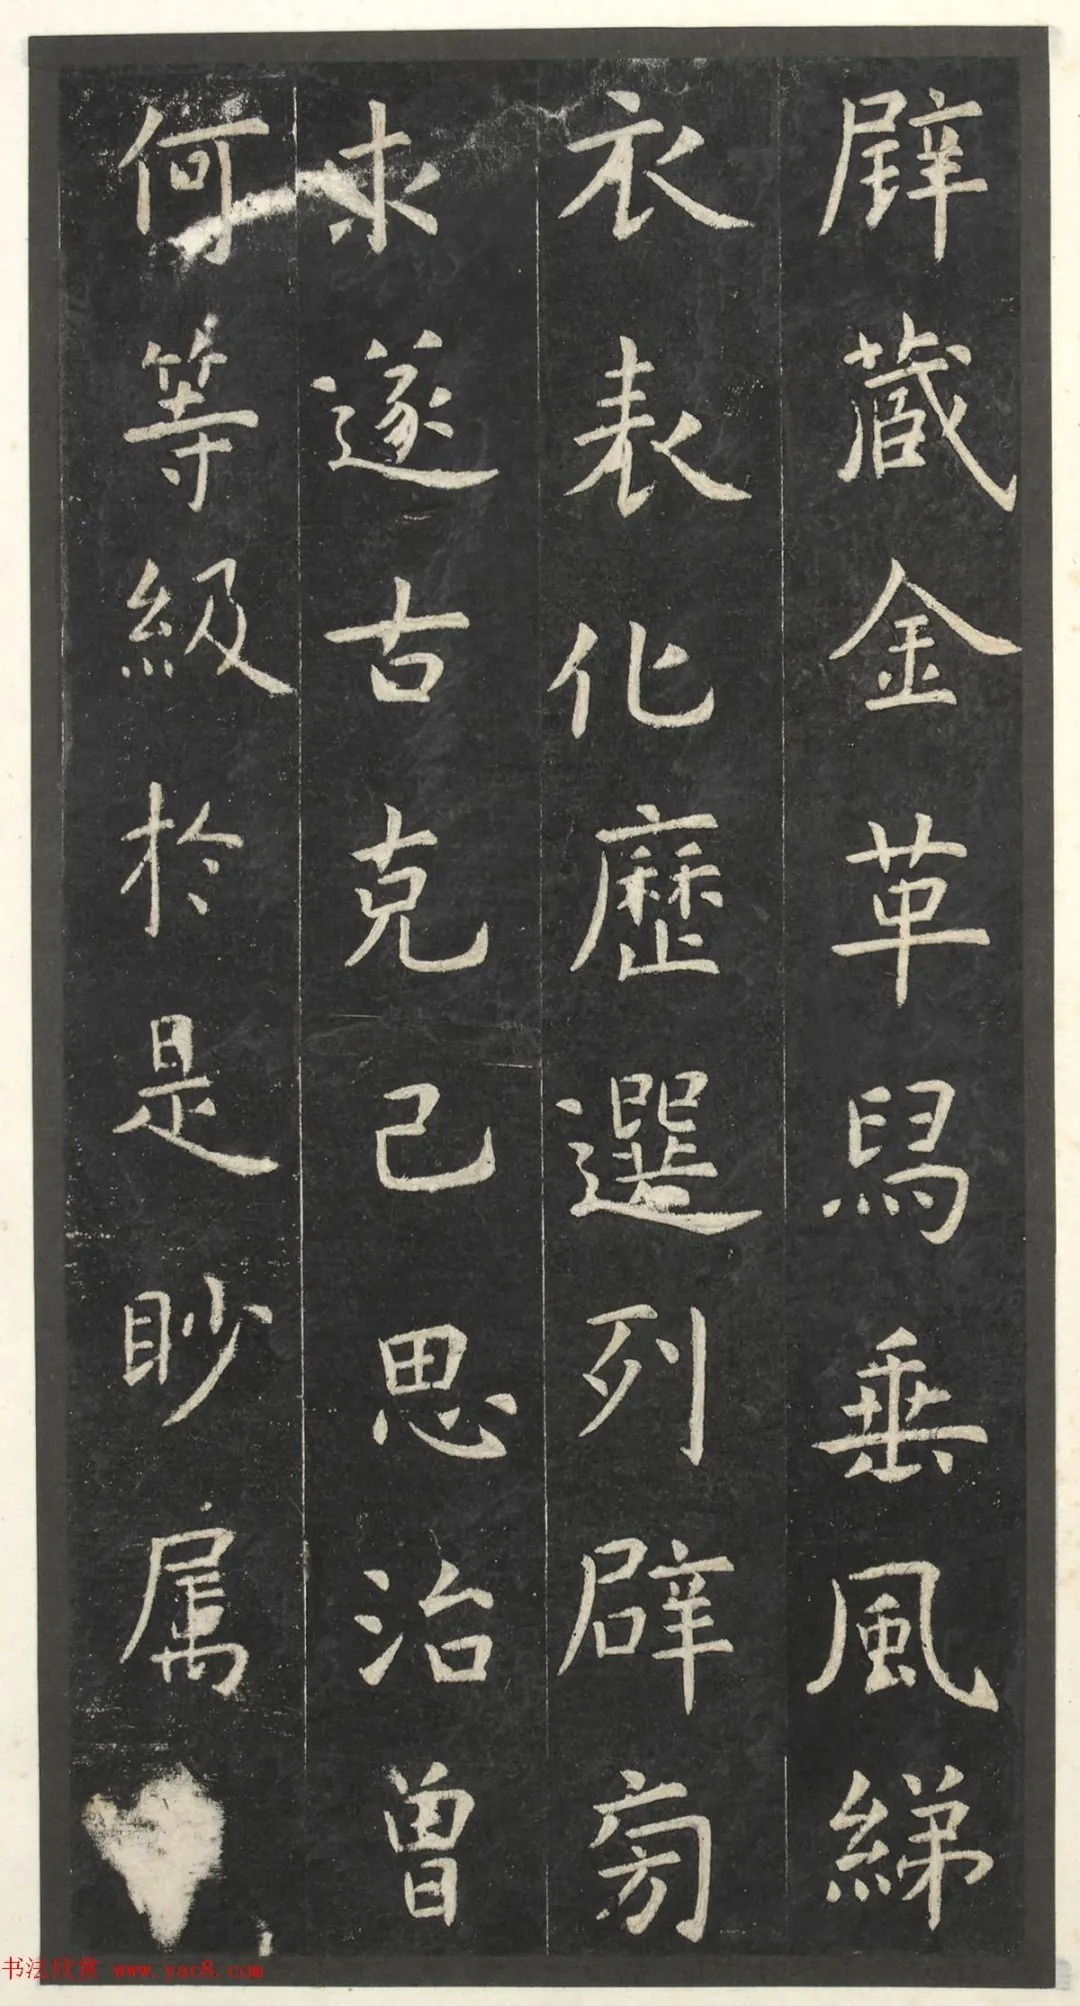 辟藏金革舄垂風綈
衣表化歷選列辟旁
求遂古克己思治曾
何等級於是眇屬
书法欣赏 www.yac8.com